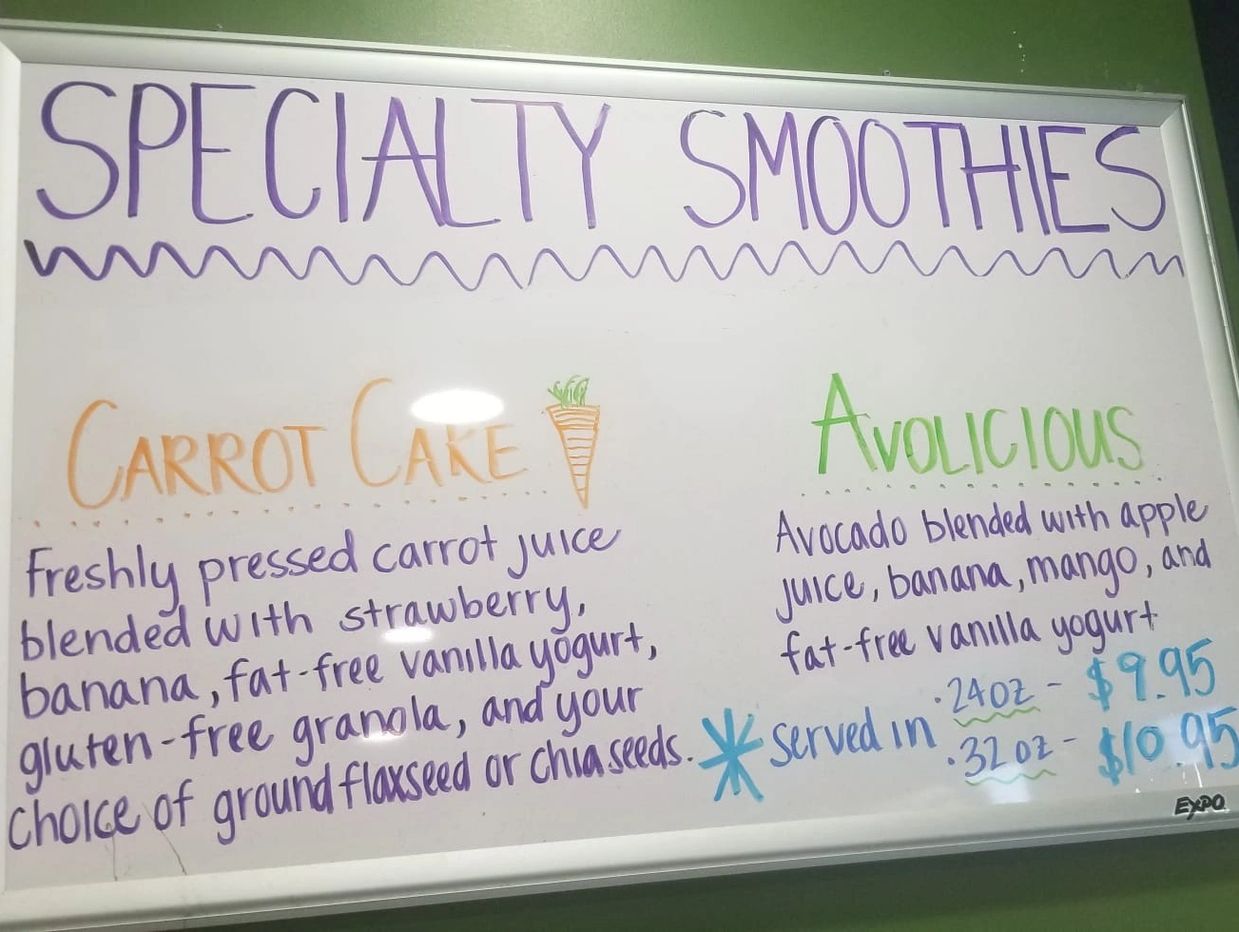 SPECIALTY SMOOTHIES
CARROT CAKE
Freshly pressed carrot juice
blended with strawberry,
banana, fat-free vanilla yogurt,
gluten-free granola, and your
choice of ground flaxseed or chia seeds.
AVOLICIOUS
Avocado blended with apple
juice, banana, mango, and
fat-free vanilla yogurt
* served in
· 24oz - $9.95
· 32oz - $10.95
EXPO